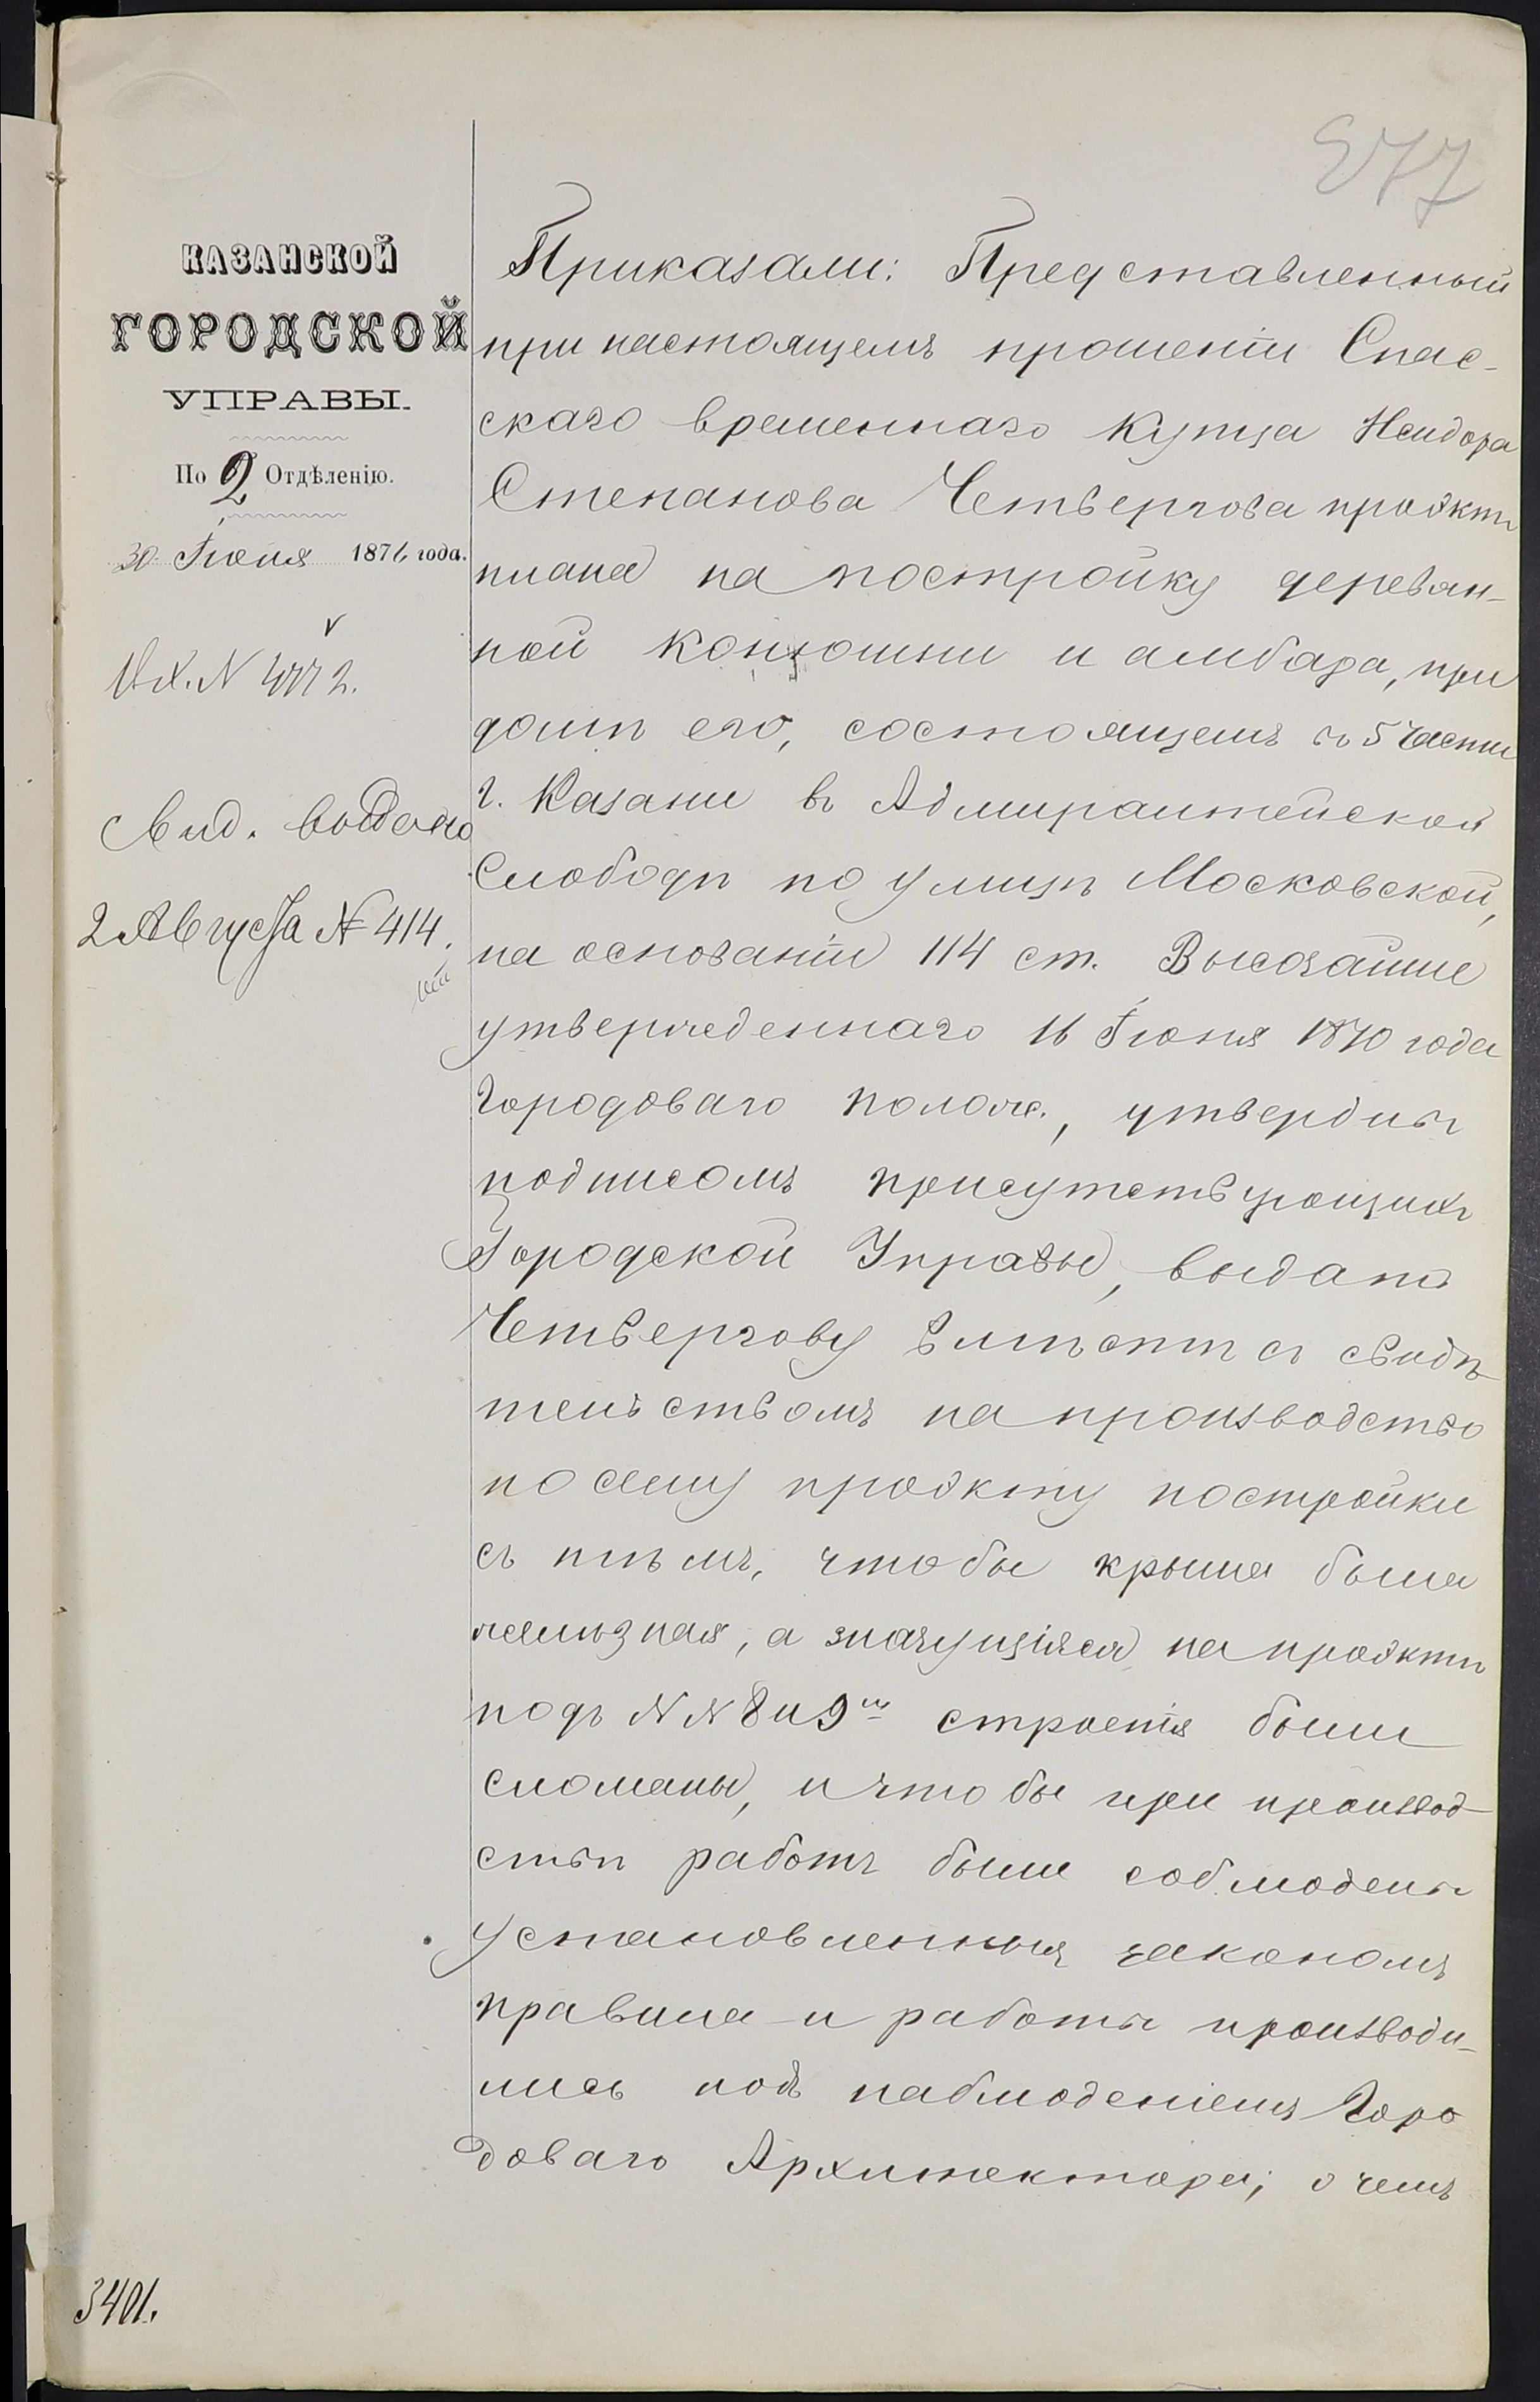 277
КАЗАНСКОЙ
ГОРОДСКОЙ
УПРАВЫ.
По 2 Отдѣленію.
30 Іюня 1876 года.
Вх. N 4772.
Свид. выдано
2 Августа № 414.
Приказали: Представленный
при настоящемъ прошеніи Спас-
скаго временнаго купца Исидора
Степанова Четвергова проэктъ
плана на постройку деревян-
ной конюшни и амбара, при
домѣ его, состоящемъ въ 5 части
г. Казани въ Адмиралтейской
Слободѣ по улицѣ Московской,
на основаніи 114 ст. Высочайше
утвержденнаго 16 Іюня 1870 года
Городоваго полож., утвердивъ
подписомъ присутствующихъ
Городской Управы, выдать
Четвергову вмѣстѣ съ свидѣ
тельствомъ на производство
по сему проэкту постройки
съ тѣмъ, чтобы крыша была
желѣзная, а значущіяся на проэктѣ
подъ N N 8 и 9 строенія были
сломаны, и чтобы при производ-
ствѣ работъ были соблюдены
установленныя закономъ
правила и работы производи-
лись подъ наблюденіемъ Горо
доваго Архитектора; о чемъ
3401.